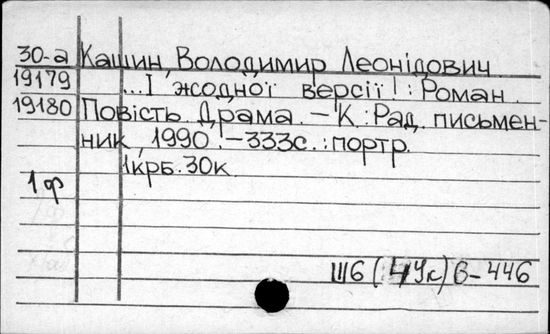 30-а Кашин, Володимир Леонідович
19179 ...І жодної версії! : Роман.
19180 Повість. Драма. – К.: Рад. письмен-
ник, 1990. – 333с. : портр.
1крб. 30к
1ф
Ш6(4Ук)6-446